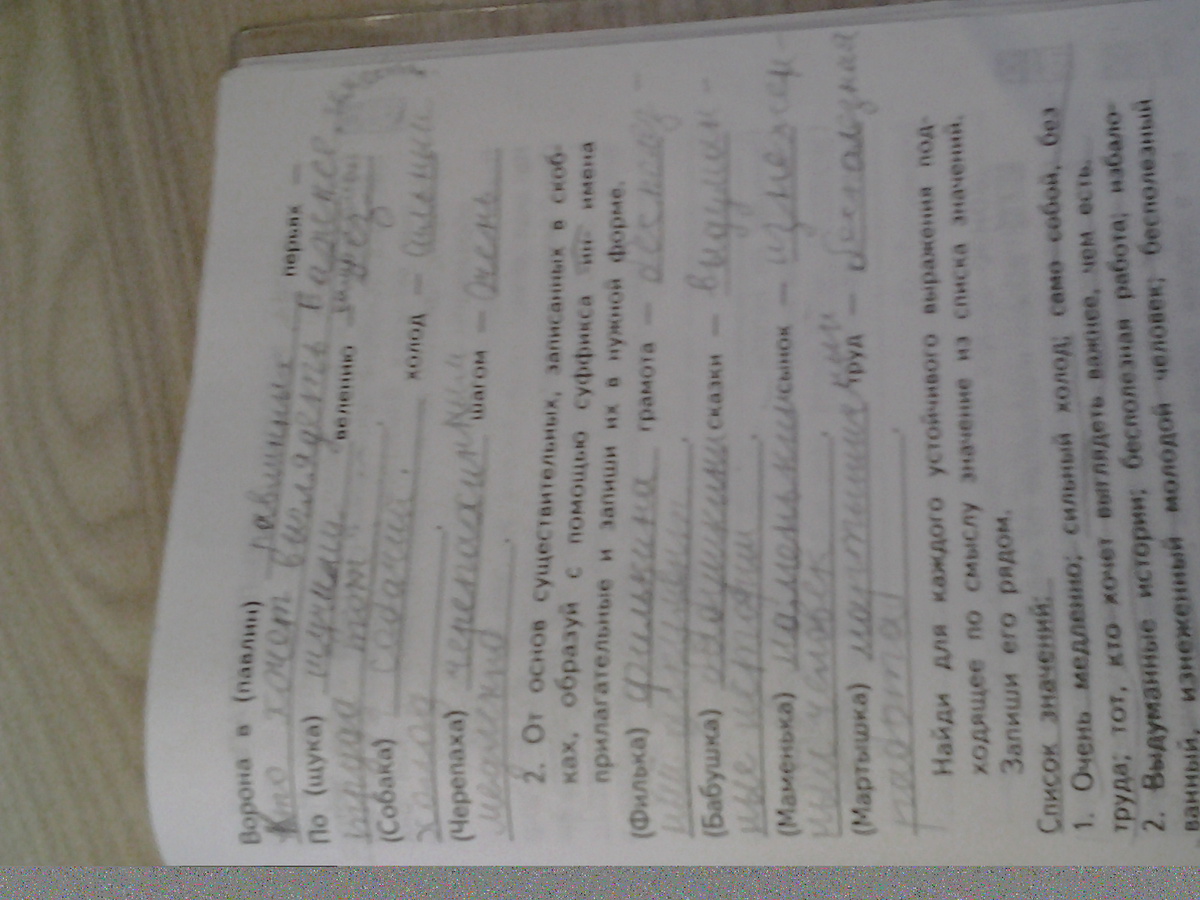 Ворона в (павлин) павлиньих перьях –
Кто хочет выглядеть важнее
По (щука) щучьему велению
труда
(Собака) собачий холод – сильный
холод.
(Черепаха) черепашьим шагом – Очень
медленно.
2. От основ существительных, записанных в скоб-
ках, образуй с помощью суффикса -ин- имена
прилагательные и запиши их в нужной форме.
(Филька) филькина грамота – бесполез-
(Бабушка) бабушкины сказки – выдуман-
ные истории.
(Маменька) маменькин сынок – изнежен-
ный человек.
(Мартышка) труд – бесполезная
работа.
Найди для каждого устойчивого выражения под-
ходящее по смыслу значение из списка значений.
Запиши его рядом.
Список значений:
1. Очень медленно; сильный холод; само собой, без
труда; тот, кто хочет выглядеть важнее, чем есть.
2. Выдуманные истории; бесполезная работа; избало-
ванный, изнеженный молодой человек; бесполезный